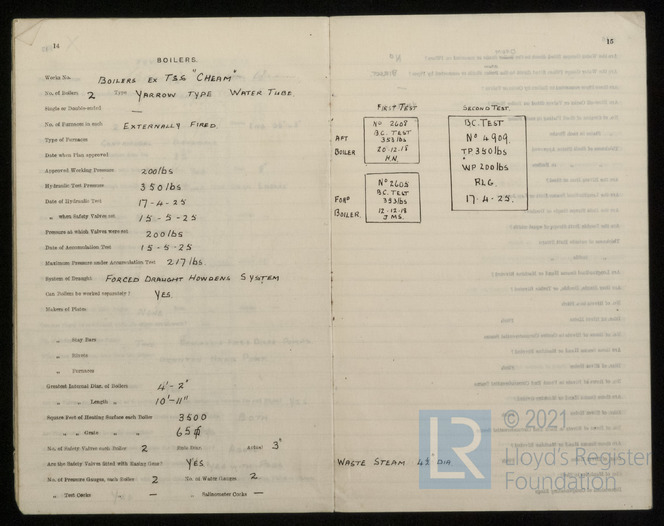 14
BOILERS.
Works No. BOILERS EX TSS "CHEAM"
No. of Boilers 2 Type YARROW TYPE WATER TUBE
Single or Double-ended —
No. of Furnaces in each EXTERNALLY FIRED
Type of Furnaces
Date when Plan approved
Approved Working Pressure 200 lbs
Hydraulic Test Pressure 350 lbs
Date of Hydraulic Test 17-4-25
„ when Safety Valves set 15-5-25
Pressure at which Valves were set 200 lbs
Date of Accumulation Test 15-5-25
Maximum Pressure under Accumulation Test 217 lbs.
System of Draught FORCED DRAUGHT HOWDENS SYSTEM
Can Boilers be worked separately? YES.
Makers of Plates
„ Stay Bars
„ Rivets
„ Furnaces
Greatest Internal Diam. of Boilers 4'-2"
„ „ Length „ 10'-11"
Square Feet of Heating Surface each Boiler 3500
„ „ Grate „ „ 65
No. of Safety Valves each Boiler 2 Rule Diam. Actual 3"
Are the Safety Valves fitted with Easing Gear? YES
No. of Pressure Gauges, each Boiler 2 No. of Water Gauges 2
„ Test Cocks „ — „ Salinometer Cocks —
15
FIRST TEST SECOND TEST
AFT BOILER
Nº 2608
B.C. TEST
353 lbs
20-12-18
H.N.
FORD BOILER.
Nº 2605
B.C. TEST
353 lbs
12-12-18
J.M.S.
B.C. TEST
Nº 4909.
T.P. 350 lbs
WP 200 lbs
RLG.
17-4-25.
WASTE STEAM 4½" DIA
© 2021
LR
Lloyd's Register
Foundation